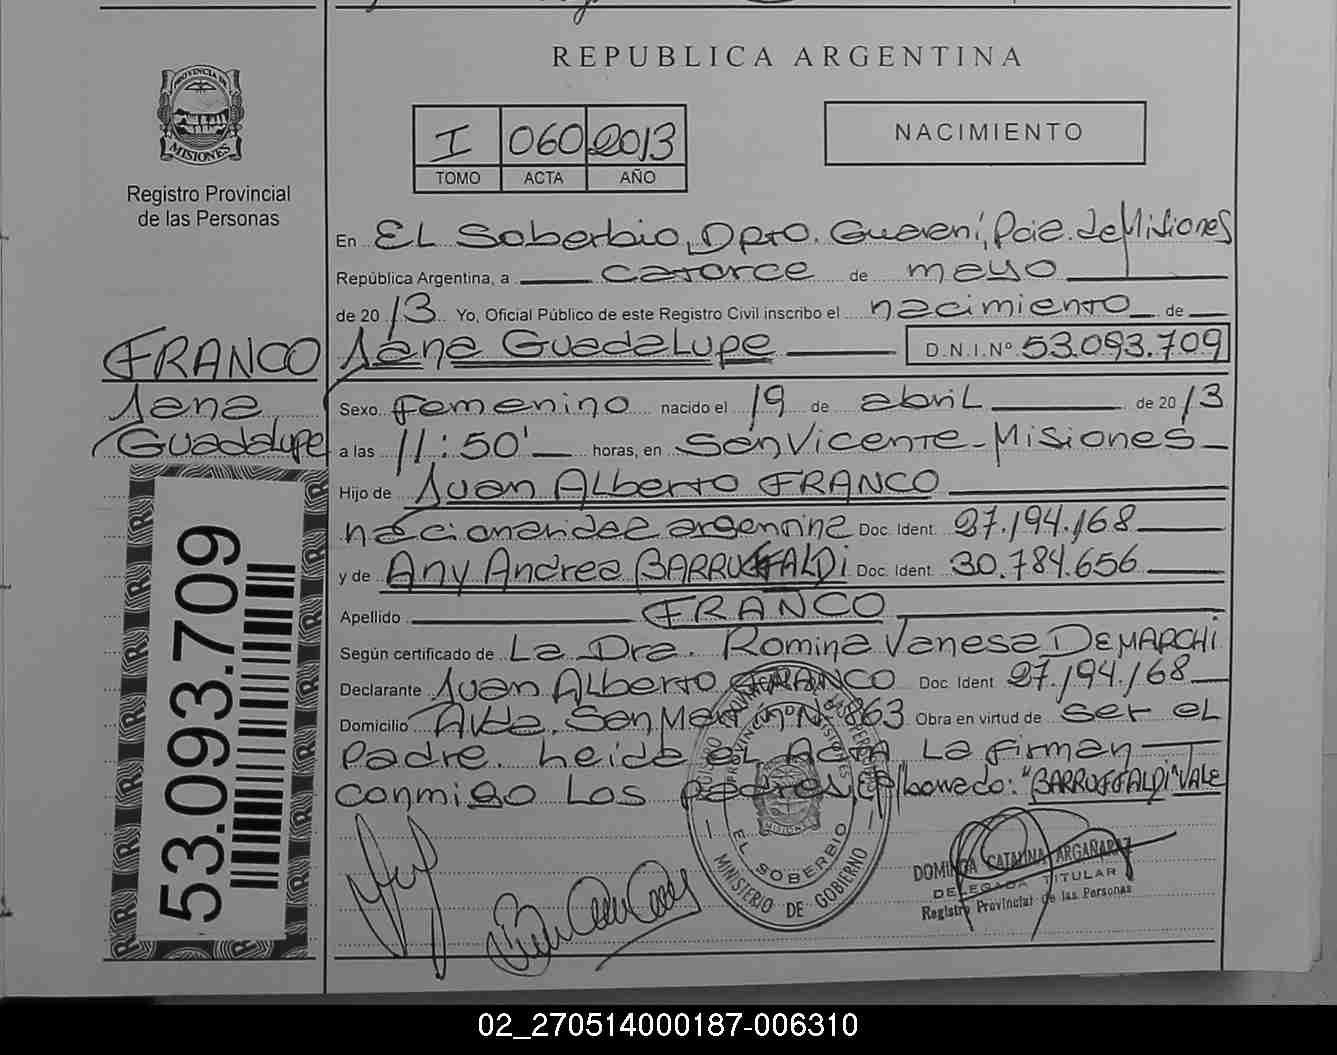 REPUBLICA ARGENTINA
PROVINCIA DE
MISIONES
Registro Provincial
de las Personas
I 060 2013
TOMO ACTA AÑO
NACIMIENTO
En EL Soberbio, Dpto. Guaraní, Pcia. de Misiones
República Argentina, a catorce de mayo
de 2013 Yo, Oficial Público de este Registro Civil inscribo el nacimiento de
Jana Guadalupe D.N.I.Nº 53.093.709
FRANCO
Jana
Guadalupe
Sexo femenino nacido el 19 de abril de 2013
a las 11:50' horas, en San Vicente - Misiones
Hijo de Juan Alberto FRANCO
nacionalidad argentina Doc. Ident. 27.194.168
y de Any Andrea BARRUFFALDI Doc. Ident. 30.784.656
Apellido FRANCO
Según certificado de La Dra. Romina Vanesa DEMARCHI
Declarante Juan Alberto FRANCO Doc. Ident. 27.194.168
Domicilio Avda. San Martín Nº 863 Obra en virtud de ser el
padre. Leida el Acta La firman
conmigo Los padres, E/borrado: "BARRUFFALDI" VALE
53.093.709
EL SOBERBIO
MINISTERIO DE GOBIERNO
DOMINGA CATALINA ARGAÑARAZ
DELEGADA TITULAR
Registro Provincial de las Personas
02_270514000187-006310